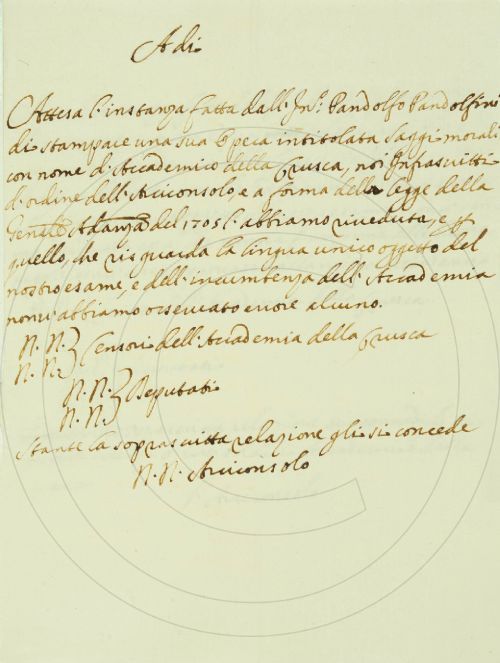 Adi
Attesa l'instanza fatta dall' Inn.º Pandolfo Pandolfini
di stampare una sua Opera intitolata Saggi morali
con nome di Accademico della Crusca, noi Infrascritti
d'ordine dell'Arciconsolo, e a forma della legge della
Genle. Adanza del 1705 l'abbiamo riveduta, e p
quello, che risguarda la lingua unico oggetto del
nostro esame, e dell'incumbenza dell'Accademia
non v'abbiamo osservato errore alcuno.
N. N. } Censori dell'Accademia della Crusca
N. N.
N. N. } Deputati
N. N.
Stante la soprascritta relazione gli si concede
N. N. Arciconsolo